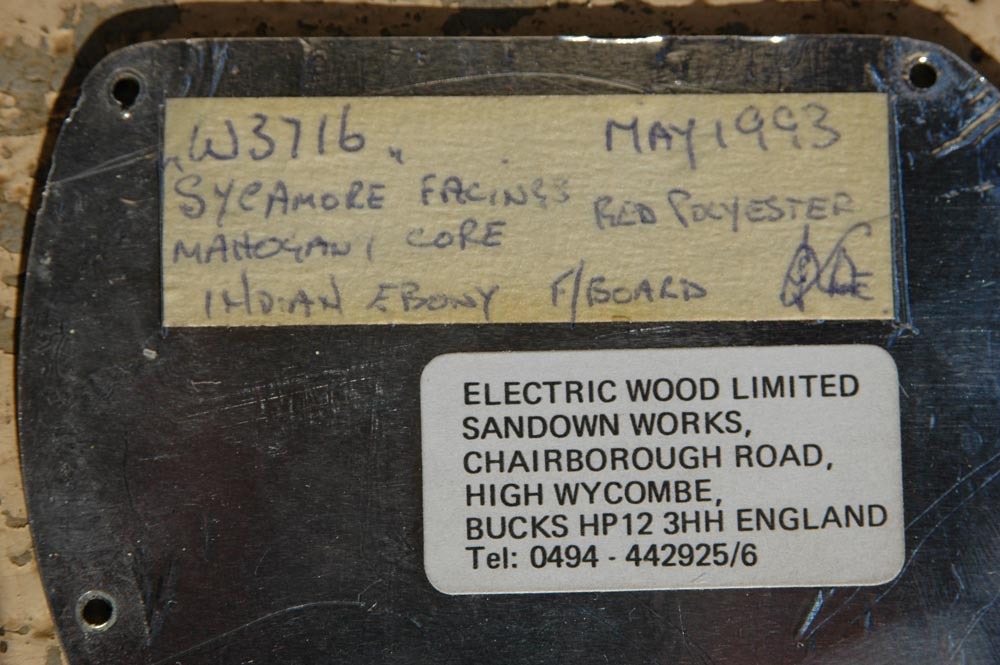 "W3716" MAY 1993
SYCAMORE FACINGS RED POLYESTER
MAHOGANY CORE
INDIAN EBONY F/BOARD
ELECTRIC WOOD LIMITED
SANDOWN WORKS,
CHAIRBOROUGH ROAD,
HIGH WYCOMBE,
BUCKS HP12 3HH ENGLAND
Tel: 0494 - 442925/6